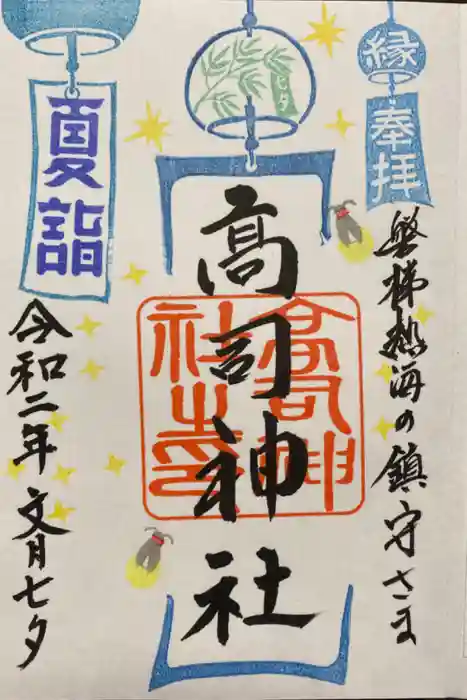 縁
奉拝
磐梯熱海の鎮守さま
七夕
高司神社
高司神社之印
夏詣
令和二年文月七夕